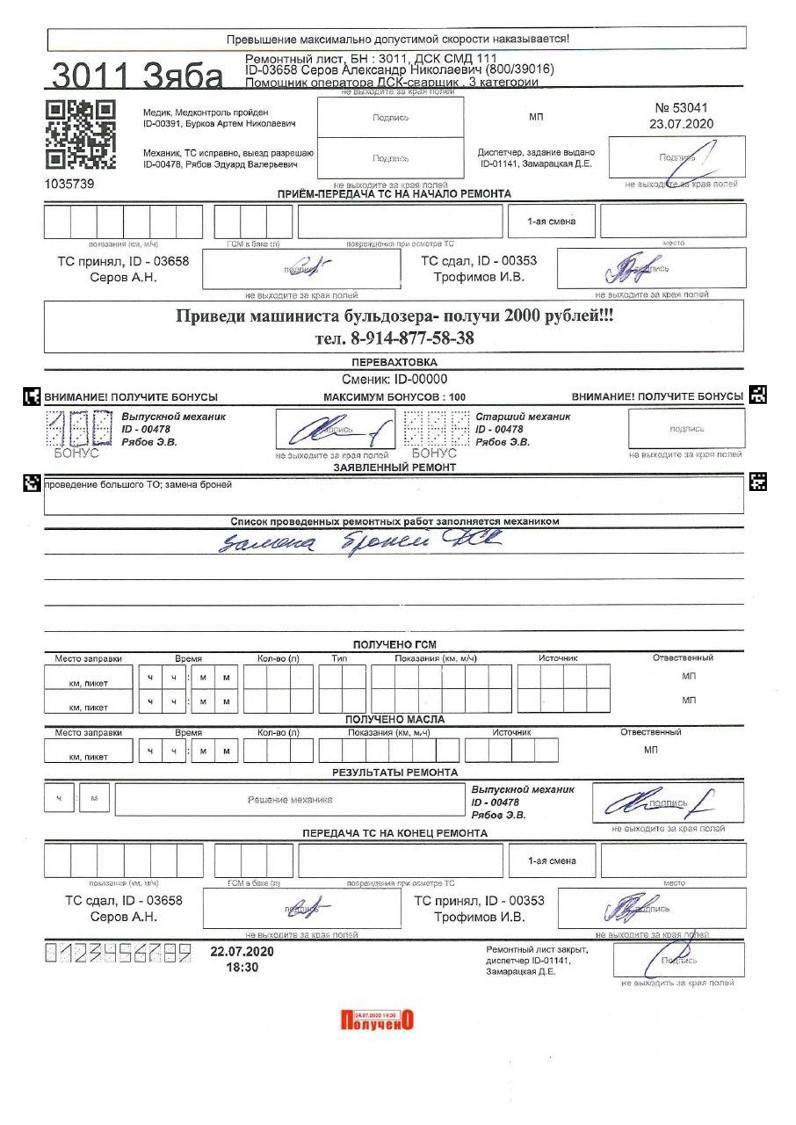 Превышение максимально допустимой скорости наказывается!
3011 Зяба
Ремонтный лист, БН : 3011, ДСК СМД 111
ID-03658 Серов Александр Николаевич (800/39016)
Помощник оператора ДСК-сварщик , 3 категории
не выходите за края полей
Медик, Медконтроль пройден
ID-00391, Бурков Артем Николаевич
Подпись
МП
№ 53041
23.07.2020
Механик, ТС исправно, выезд разрешаю
ID-00478, Рябов Эдуард Валерьевич
Подпись
Диспетчер, задание выдано
ID-01141, Замарацкая Д.Е.
Подпись
1035739
не выходите за края полей
не выходите за края полей
ПРИЁМ-ПЕРЕДАЧА ТС НА НАЧАЛО РЕМОНТА
1-ая смена
показания (км, м/ч)
ГСМ в баке (л)
повреждения при осмотре ТС
место
ТС принял, ID - 03658
Серов А.Н.
подпись
ТС сдал, ID - 00353
Трофимов И.В.
подпись
не выходите за края полей
не выходите за края полей
Приведи машиниста бульдозера- получи 2000 рублей!!!
тел. 8-914-877-58-38
ПЕРЕВАХТОВКА
Сменик: ID-00000
ВНИМАНИЕ! ПОЛУЧИТЕ БОНУСЫ
МАКСИМУМ БОНУСОВ : 100
ВНИМАНИЕ! ПОЛУЧИТЕ БОНУСЫ
100
БОНУС
Выпускной механик
ID - 00478
Рябов Э.В.
подпись
БОНУС
Старший механик
ID - 00478
Рябов Э.В.
подпись
не выходите за края полей
не выходите за края полей
ЗАЯВЛЕННЫЙ РЕМОНТ
проведение большого ТО; замена броней
Список проведенных ремонтных работ заполняется механиком
замена броней ДСК
ПОЛУЧЕНО ГСМ
Место заправки Время Кол-во (л) Тип Показания (км, м/ч) Источник Отвественный
км, пикет ч ч : м м МП
км, пикет ч ч : м м МП
ПОЛУЧЕНО МАСЛА
Место заправки Время Кол-во (л) Показания (км, м/ч) Источник Отвественный
км, пикет ч ч : м м МП
РЕЗУЛЬТАТЫ РЕМОНТА
ч : м
Решение механика
Выпускной механик
ID - 00478
Рябов Э.В.
подпись
не выходите за края полей
ПЕРЕДАЧА ТС НА КОНЕЦ РЕМОНТА
1-ая смена
показания (км, м/ч)
ГСМ в баке (л)
повреждения при осмотре ТС
место
ТС сдал, ID - 03658
Серов А.Н.
подпись
ТС принял, ID - 00353
Трофимов И.В.
подпись
не выходите за края полей
не выходите за края полей
0123456789
22.07.2020
18:30
Ремонтный лист закрыт,
диспетчер ID-01141,
Замарацкая Д.Е.
Подпись
не выходить за края полей
ПолученО